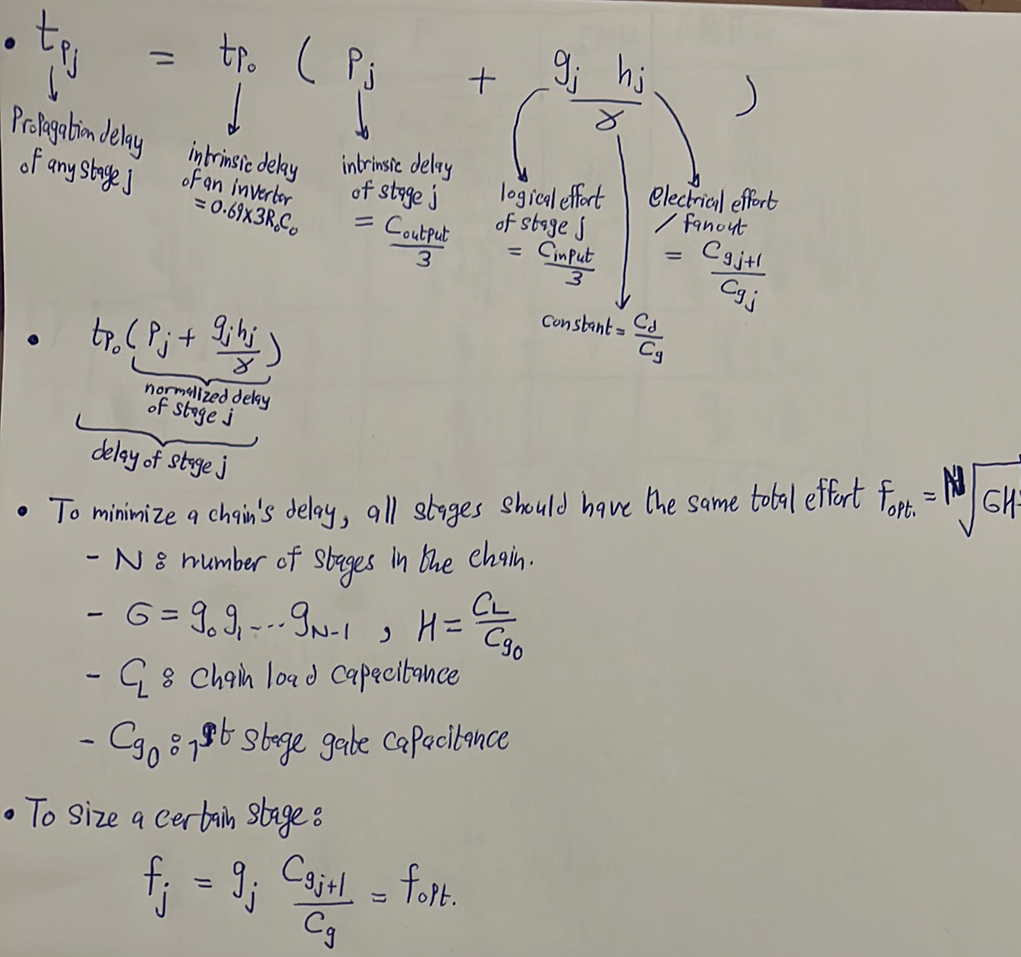 • tpj = tp₀ ( Pj + gj hj / γ )
Propagation delay of any stage j
intrinsic delay of an invertor = 0.69×3R₀C₀
intrinsic delay of stage j = Coutput / 3
logical effort of stage j = Cinput / 3
Electrical effort / fanout = Cgj+1 / Cgj
Constant = Cd / Cg
• tp₀ ( Pj + gjhj / γ )
normalized delay of stage j
delay of stage j
• To minimize a chain's delay, all stages should have the same total effort fopt. = N√GH
- N : number of stages in the chain.
- G = g₀g₁---gN-1 , H = CL / Cg₀
- CL : chain load capacitance
- Cg₀ : 1st stage gate capacitance
• To size a certain stage :
fj = gj Cgj+1 / Cg = fopt.